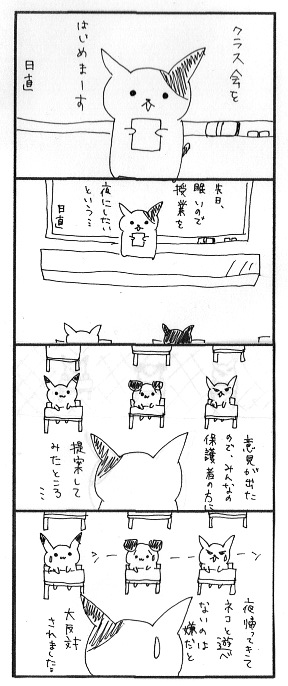 クラス会を
はじめまーす
日直
先日、
眠いので
授業を
夜にしたい
という…
日直
意見が出た
ので、みんなの
保護者の方に
提案して
みたところ…
シーーーーン
夜帰ってきて
ネコと遊べ
ないのは
嫌だと
大反対
されました